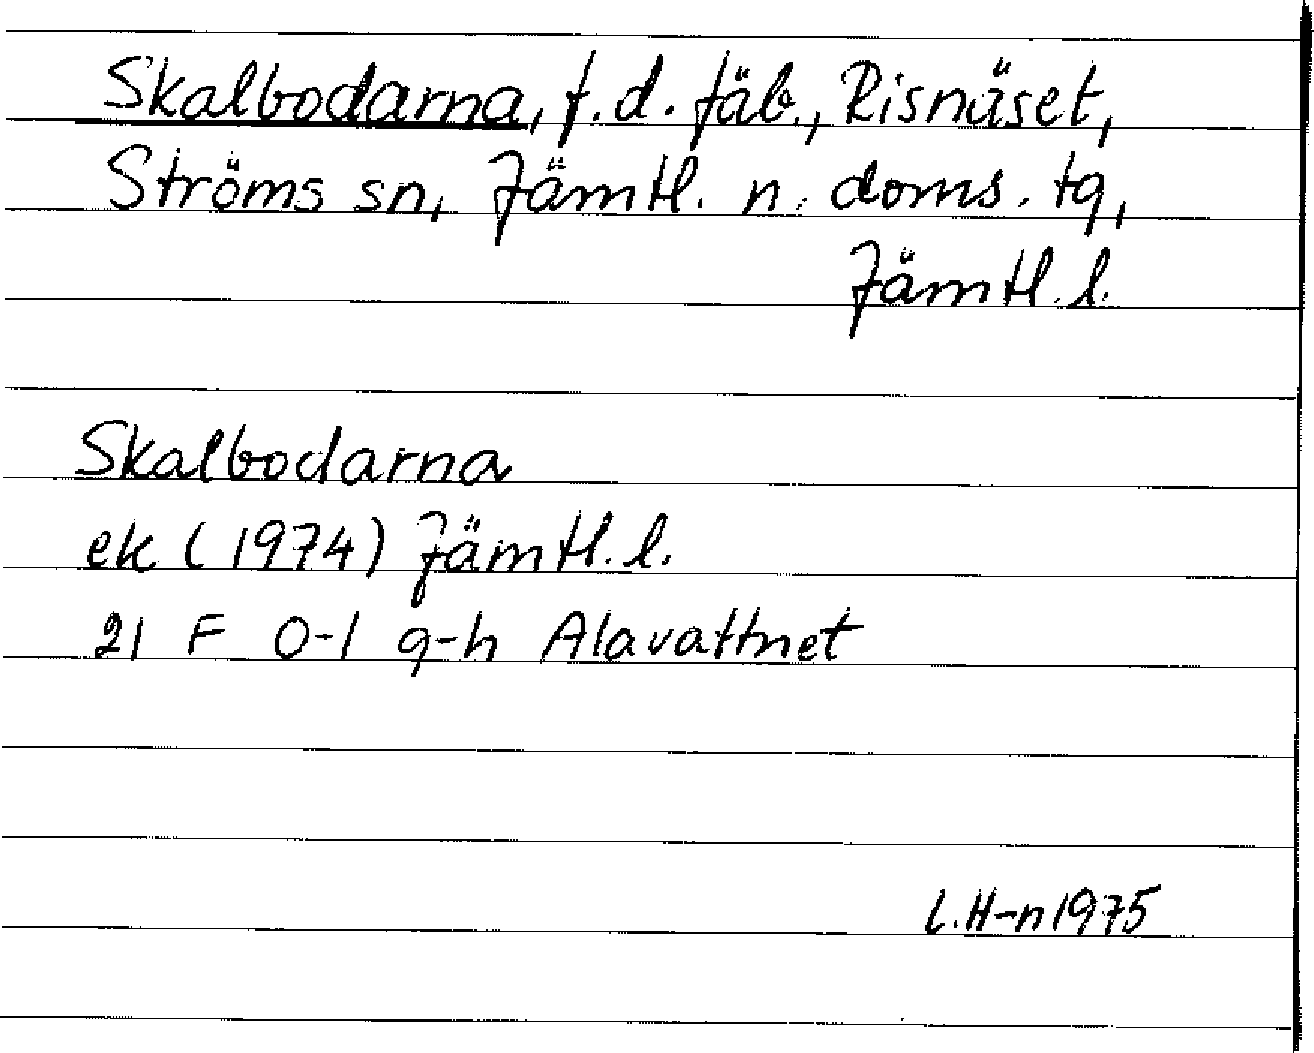 Skalbodarna, f.d. fäb., Risnäset,
Ströms sn, Jämtl. n. doms. tg,
Jämtl. l.
Skalbodarna
ek (1974) Jämtl. l.
21 F 0-1 g-h Alavattnet
L.H-n 1975